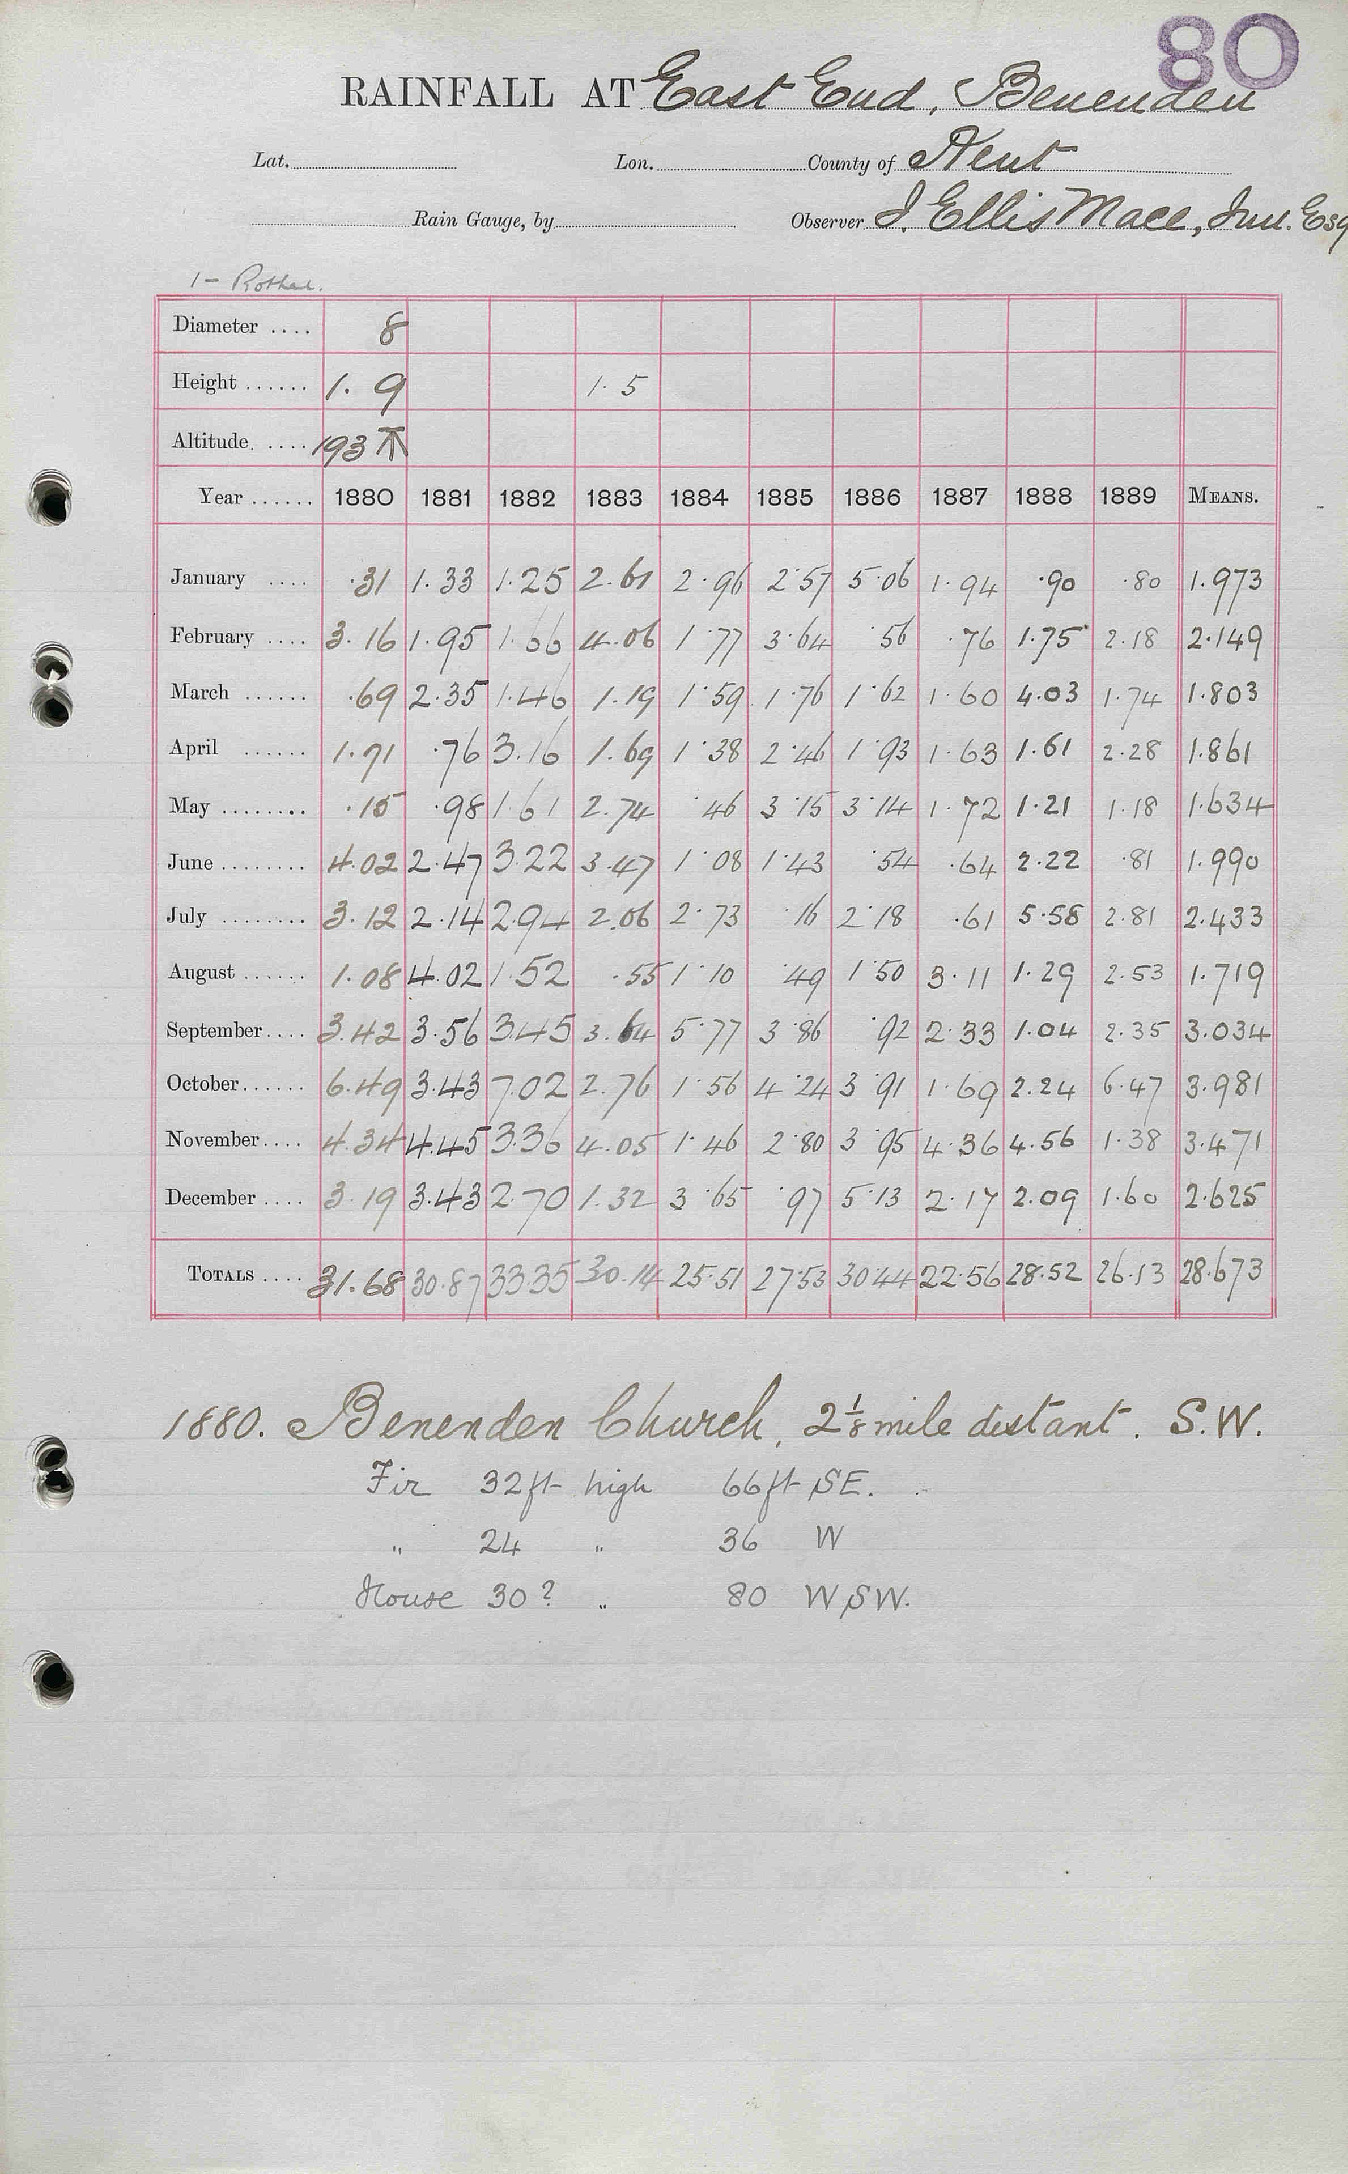 80
RAINFALL AT East End, Benenden
Lat. Lon. County of Kent
Rain Gauge, by Observer J. Ellis Mace, Jun. Esq
1 - Rother.
Diameter .... 8
Height ...... 1. 9 1. 5
Altitude. .... 193
Year ...... 1880 1881 1882 1883 1884 1885 1886 1887 1888 1889 MEANS.
January .... .31 1.33 1.25 2.61 2.96 2.57 5.06 1.94 .90 .80 1.973
February .... 3.16 1.95 1.66 4.06 1.77 3.64 .56 .76 1.75 2.18 2.149
March ...... .69 2.35 1.46 1.19 1.59 1.76 1.62 1.60 4.03 1.74 1.803
April ...... 1.71 .76 3.16 1.69 1.38 2.46 1.93 1.63 1.61 2.28 1.861
May ........ .15 .98 1.61 2.74 .46 3.15 3.14 1.72 1.21 1.18 1.634
June ........ 4.02 2.47 3.22 3.47 1.08 1.43 .54 .64 2.22 .81 1.990
July ........ 3.12 2.14 2.94 2.06 2.73 .16 2.18 .61 5.58 2.81 2.433
August ...... 1.08 4.02 1.52 .55 1.10 .49 1.50 3.11 1.29 2.53 1.719
September .... 3.42 3.56 3.45 3.64 5.77 3.86 .92 2.33 1.04 2.35 3.034
October ...... 6.49 3.43 7.02 2.76 1.56 4.24 3.91 1.69 2.24 6.47 3.981
November .... 4.34 4.45 3.36 4.05 1.46 2.80 3.95 4.36 4.56 1.38 3.471
December .... 3.19 3.43 2.70 1.32 3.65 .97 5.13 2.17 2.09 1.60 2.625
TOTALS .... 31.68 30.87 33.35 30.14 25.51 27.53 30.44 22.56 28.52 26.13 28.673
1880. Benenden Church, 2 1/8 mile distant. S.W.
Fir 32 ft high 66 ft SE.
" 24 " 36 W
House 30? " 80 WSW.